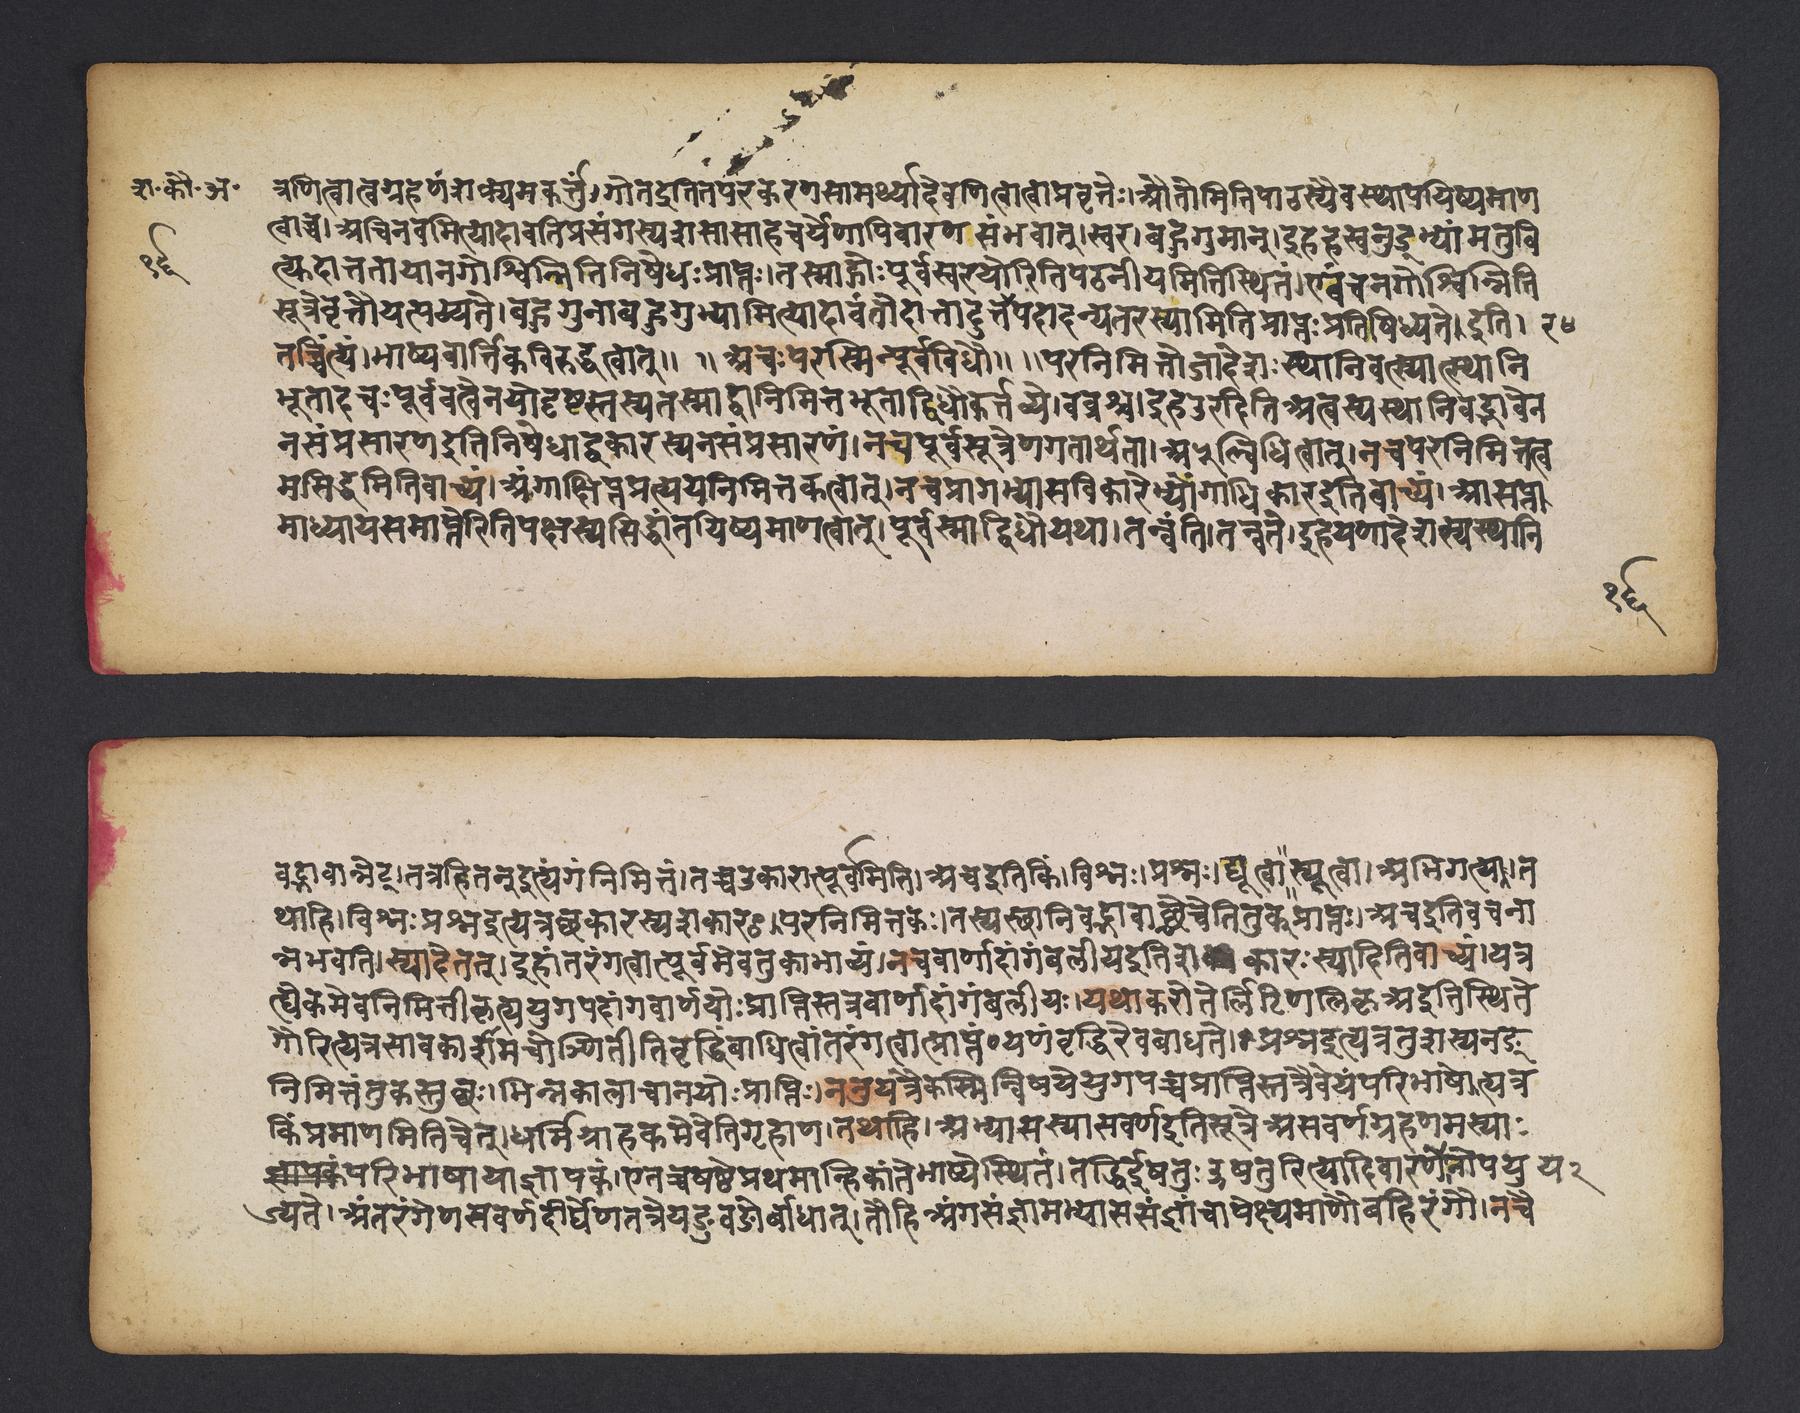 शा॰कौ॰अ॰
१६
त्रणित्वात्वग्रहणंशक्यमकर्त्तुं।गोतइतितपरकरणसामर्थ्यादेवणित्वात्वाप्रवृत्तेः।ओतोमितिपाठस्यैवस्थापयिष्यमाण
त्वाच्च।अचिनवमित्यादावतिप्रसंगस्यशसासाहचर्येणापिवारण संभवात्।स्वर।बहुगुमान्।इहह्रस्वनुड्भ्यांमतुबि
त्युदात्ततायानगोश्वन्नितिनिषेधःप्राप्तः।तस्माद्गोःपूर्वसवर्णयोरितिपठनीयमितिस्थितं।एवंचनगोश्वन्निति
सूत्रेवृत्तौयत्पठ्यते।बहुगुनाबहुगुभ्यामित्यादावंतोदात्तादुत्तरपदादन्यतरस्यामितिप्राप्तःप्रतिषिध्यते।इति। २४
तच्चिंत्यं।भाष्यवार्त्तिकविरुद्धत्वात्॥ ॥अचःपरस्मिन्पूर्वविधौ॥ ॥परनिमित्तोजादेशःस्थानिवत्स्यात्स्थानि
भूतादचःपूर्वत्वेनयोदृष्टस्तस्यतस्माद्वानिमित्तभूताद्विधौकर्त्तव्ये।वव्रश्च।इहउरदितिअत्वस्यस्थानिवद्भावेन
नसंप्रसारणइतिनिषेधाद्वकारस्यनसंप्रसारणं।नचपूर्वसूत्रेणगतार्थता।अल्विधित्वात्।नचपरनिमित्तत्व
मसिद्धमितिवाच्यं।अंगाक्षिप्तप्रत्ययनिमित्तकत्वात्।नचप्रागभ्यासविकारेभ्योंगाधिकारइतिवाच्यं।आसप्ता
माध्यायसमाप्तेरितिपक्षस्यसिद्धांतयिष्यमाणत्वात्।पूर्वस्माद्विधौयथा।तन्वंति।तन्वते।इहयणादेशस्यस्थानि
१६
वद्भावान्नेट्।तत्रहितनुइत्यंगंनिमित्तं।तच्चउकारात्पूर्वमिति।अचइतिकिं।विश्नः।प्रश्नः।द्यूत्वा॥स्यूत्वा।अभिगत्या।त
थाहि।विश्नःप्रश्नइत्यत्रछकारस्यशकारः।परनिमित्तकः।तस्यस्थानिवद्भावाच्छेचेतितुक्प्राप्तः।अचइतिवचना
न्नभवति।स्यादेतत्।इहांतरंगत्वात्पूर्वमेवतुकाभाव्यं।नचवार्णादांगंबलीयइतिश कारःस्यादितिवाच्यं।यत्र
ह्येकमेवनिमित्तीकृत्ययुगपदांगवार्णयोःप्राप्तिस्तत्रवार्णादांगंबलीयः।यथाकरोतेर्लिटिणलिकृअइतिस्थिते
गौरित्यत्रसावकाशोमचोञ्णितीतिवृद्धिंबाधित्वांतरंगत्वात्प्राप्तं॰यणंवृद्धिरेवबाधते।प्रश्नइत्यत्रतुशस्यनङ्
निमित्तंतुकस्तुछः।भिन्नकालाचानयोःप्राप्तिः।ननुयत्रैकस्मिन्विषयेयुगपच्चप्राप्तिस्तत्रैवेयंपरिभाषेत्यत्र
किंप्रमाणमितिचेत्।धर्मिग्राहकमेवेतिगृहाण।तथाहि।अभ्यासस्यासवर्णइतिसूत्रेअसवर्णग्रहणमस्याः
परिभाषायाज्ञापकं।एतच्चषष्ठेप्रथमान्हिकांतेभाष्येस्थितं।तद्धिईषतुःऊषतुरित्यादिवारणेनोपयु य२
ज्यते।अंतरंगेणसवर्णदीर्घेणतत्रेयङुवङोर्बाधात्।तौहिअंगसंज्ञामभ्याससंज्ञांचापेक्ष्यमाणौबहिरंगौ।नचै